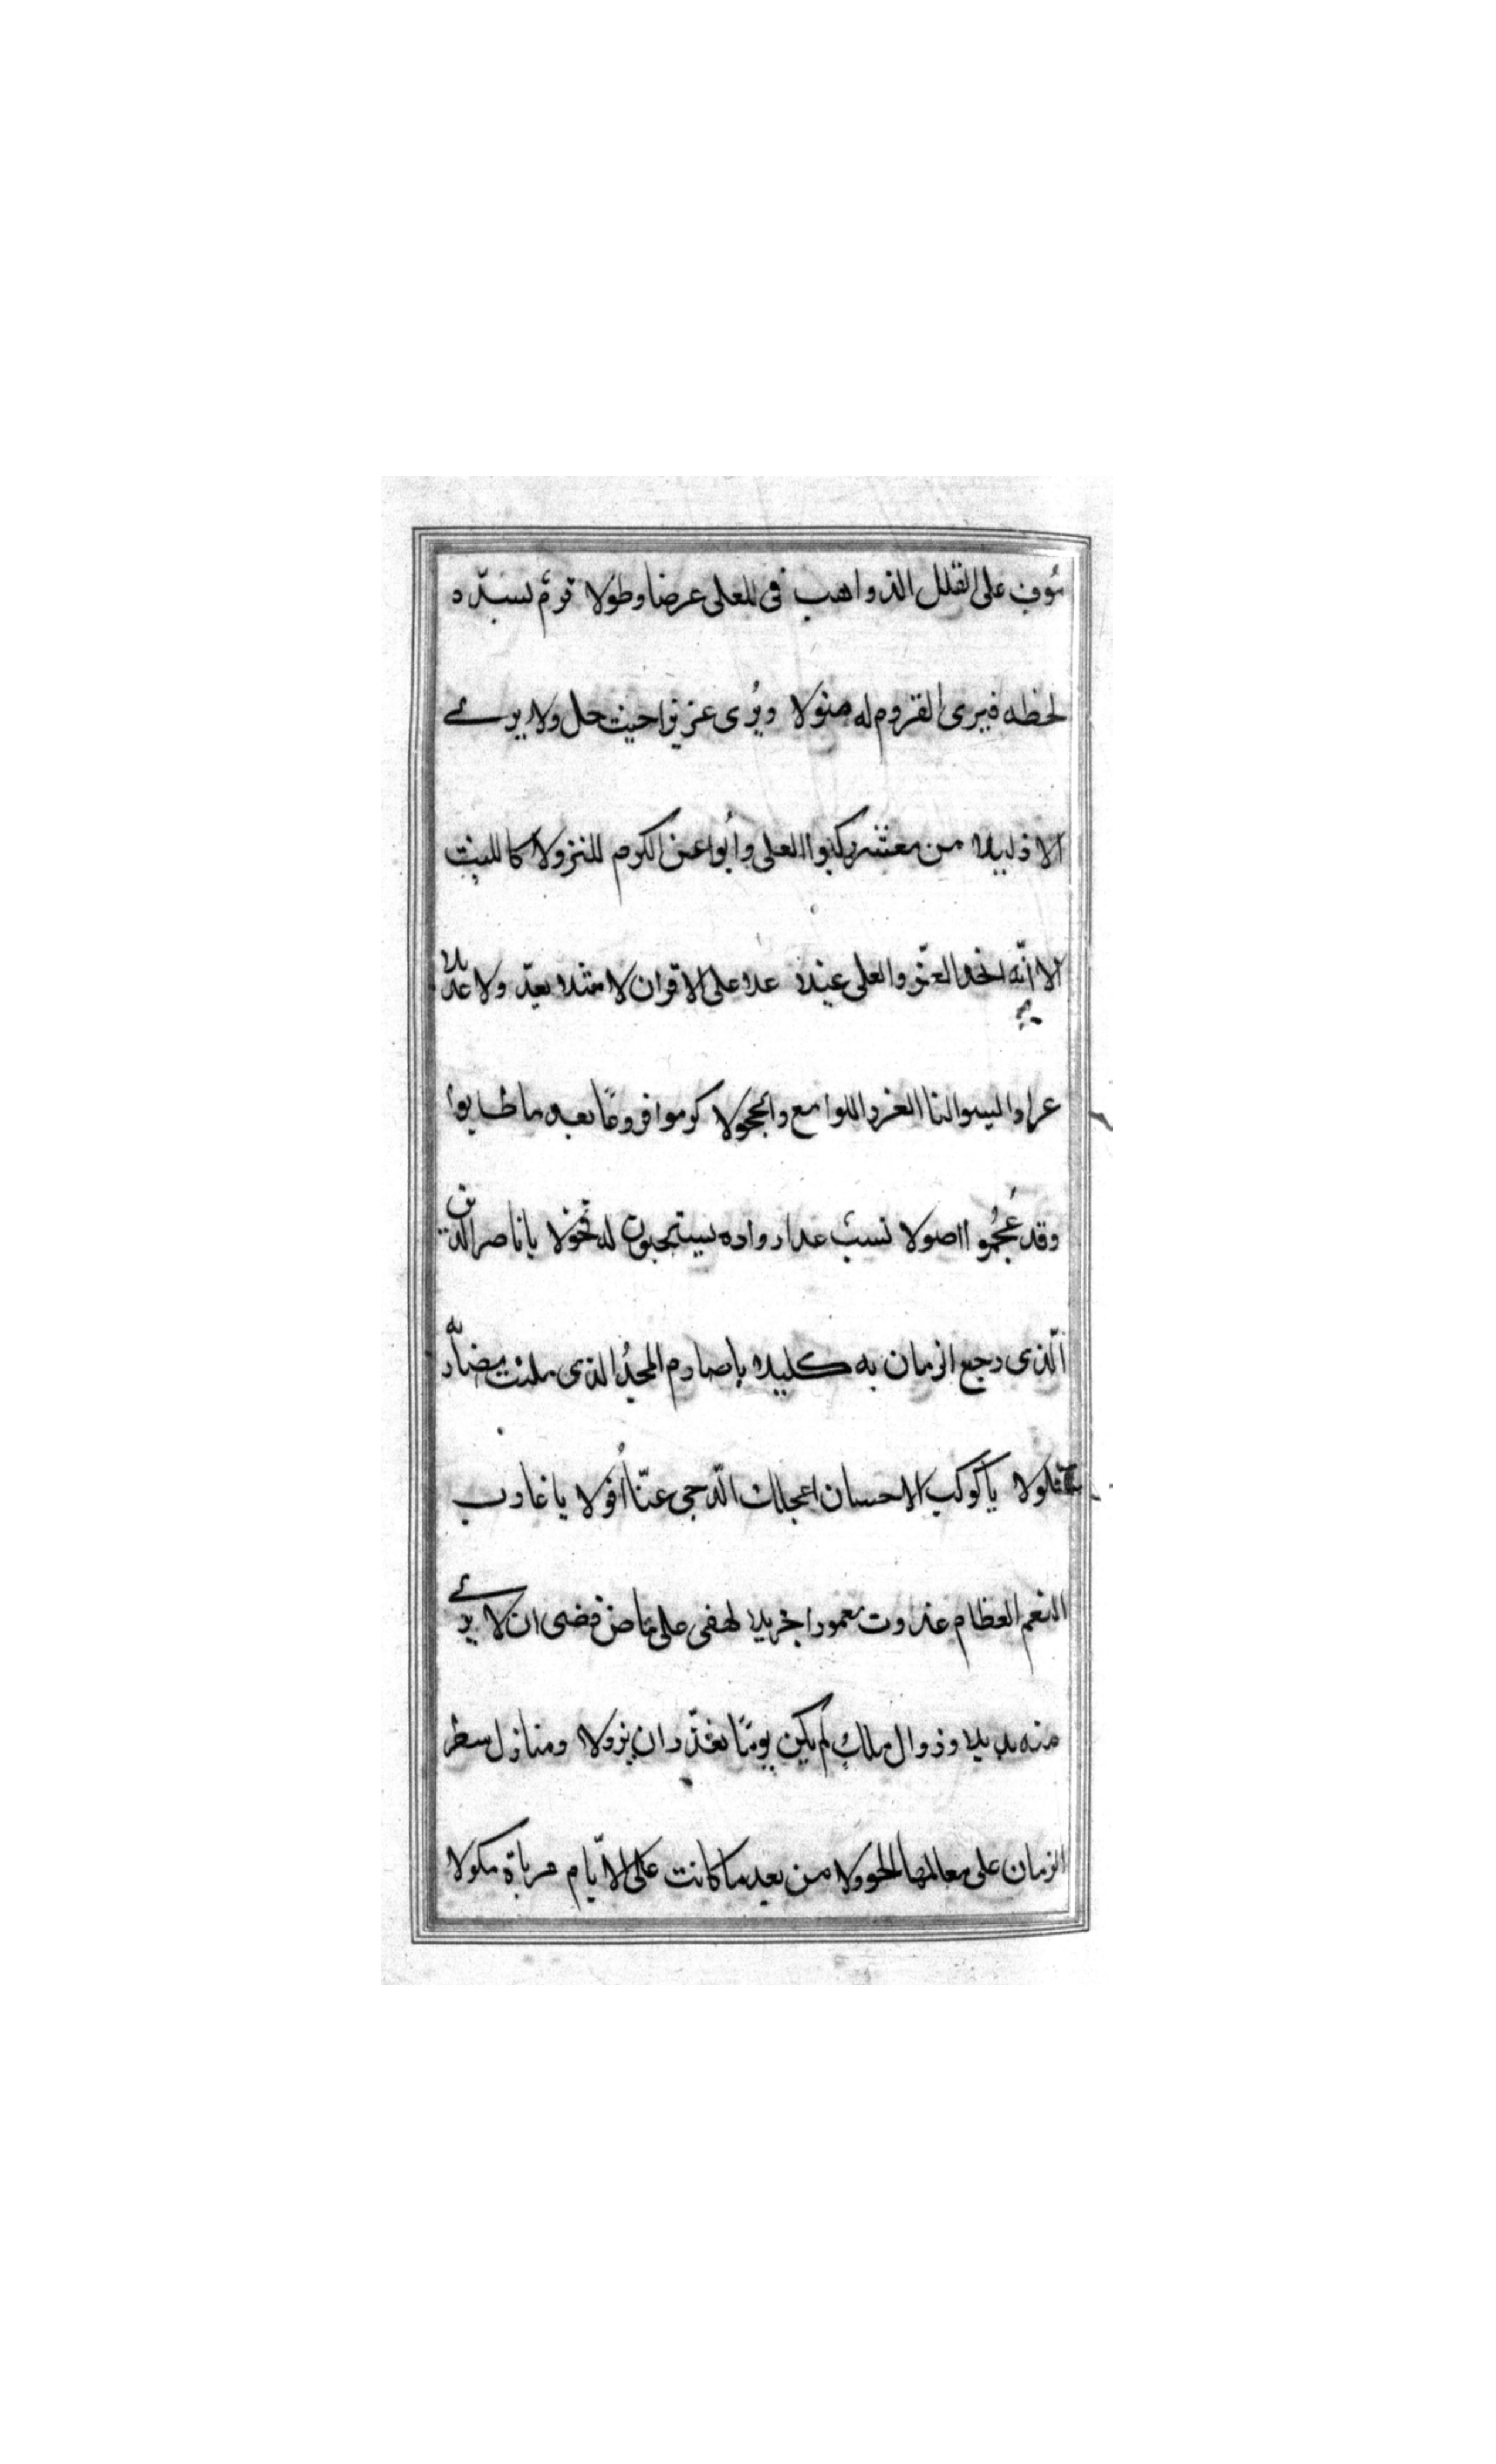 موف على القلل الذواهب فى العلى عرضا وطولا قرم يسدد
لحظه فيرى القروم له مثولا ويرى عزيزا حيث حل ولا يرى
الا ذليلا من معشر ركبوا العلى وأبوا عن الكرم النزولا كالليث
الا انه اتخذ العز والعلى غيلا علا على الاقران لا مثلا يعد ولا عديلا
غرا واليسوا لنا الغرر اللوامع والحجولا كرموا فروعا بعد ما طابوا
وقد عجموا اصولا نسب غدا رواده يستنجبون له فحولا يا ناصر الدين
الذى رجع الزمان به كليلا يا صارم المجد الذى ملئت مضاربه
فلولا يا كوكب الاحسان اعجلك الدجى عنا أفولا يا غارب
النعم العظام غدوت معمورا جزيلا لهفى على ماض قضى ان لا يرى
منه بديلا وزوال ملك لم يكن يوما يقدر ان يزولا ومنازل سطر
الزمان على معالمها الحوولا من بعد ما كانت على الايام مرباة نكولا